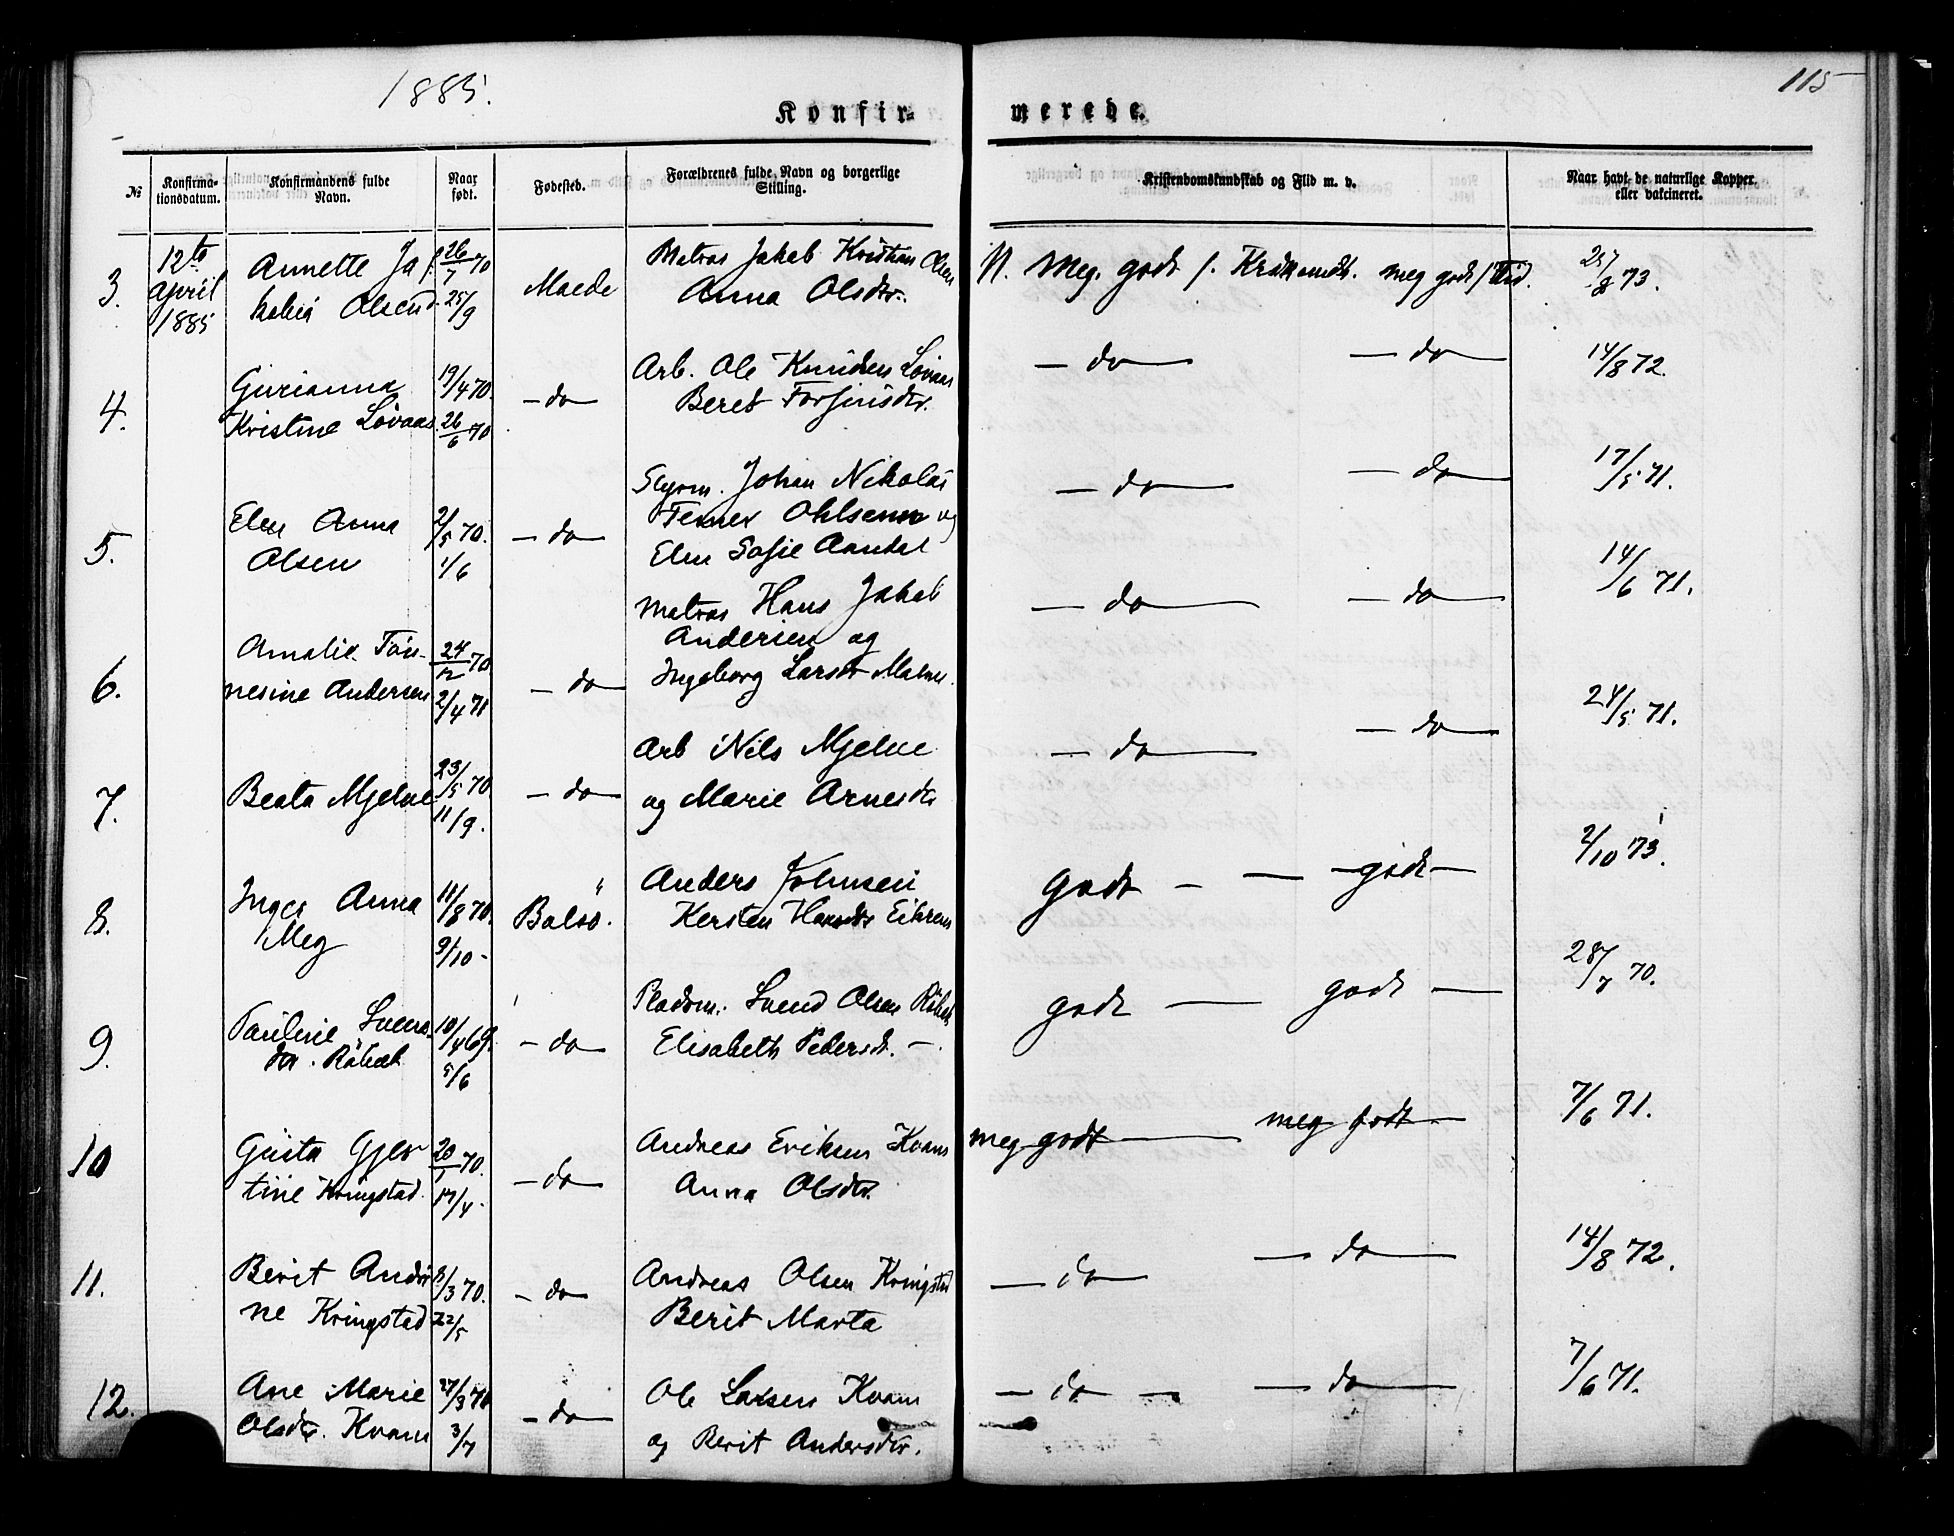 1885.
115
Konfir-
merede.
№
Konfirma-
tionsdatum.
Konfirmandens fulde
Navn.
Naar
født.
Fødested.
Forældrenes fulde Navn og borgerlige
Stilling.
Kristendomskundskab og Flid m. v.
Naar havt de naturlige Kopper
eller vakcineret.
3.
12te
april
1885
Annette Ja
kobia Olsen
26/7 70
25/9
Matros Jakob Kristian Olsen
Anna Olsdtr.
N. Meg. godt meg godt
25/8 73.
4.
Gurianna
Kristine Løvaas
19/4 70.
26/6 70
- do
Arb. Ole Knudsen Løvaas
Beret
- do - - do -
14/8 72.
5.
Elen Anna
Olsen
2/5 70.
1/6
- do
Styrm. Johan Nikolai
Ohlsen og
Elen Sofie
- do - - do -
17/5 71.
6.
Amalie Tøn-
nesine Andersen
24/12 70
2/4 71
- do
Matros Hans Jakob
Andersen og
Ingeborg Larsdtr
- do - - do -
14/6 71.
7.
Beata Mjelve
23/5 70
11/9.
- do
Arb Nils Mjelve
og Marie Arnesdtr
- do - - do -
24/5 71.
8.
Inger Anna
Meg
11/8 70.
9/10 -
Bolsø.
Anders Johnsen
Kersten Hansdtr
godt - - godt -
2/10 73.
9.
Pauline Svens-
dtr. Røbek
10/4 69.
5/6
- do
Pladsm. Svend Olsen Røbek
Elisabeth Pedersd. -
godt - godt -
28/7 70.
10
Gusta Gjer
tine Kringstad
20/1 70.
17/4.
- do
Andreas Eriksen Kvam
Anna Olsdtr.
meg godt - meg godt -
7/6 71.
11.
Berit Andri
ne Kringstad
8/3 70.
22/5
- do
Andreas Olsen Kringstad
Berit Marta
- do - - do -
14/8 72.
12.
Ane Marie
Olsdtr. Kvam
27/3 70
3/7
- do
Ole Larsen Kvam
og Berit Andersdtr.
- do - - do -
7/6 71.